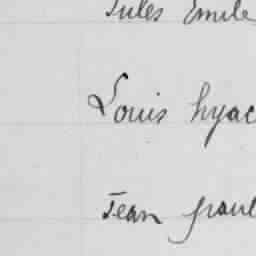 Jules Emile
Louis hyac
Jean paul